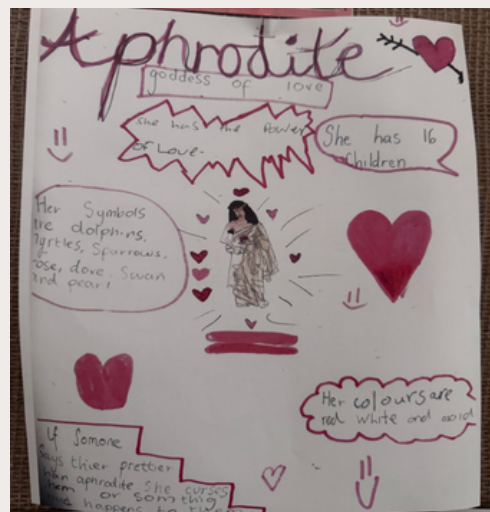 Aphrodite
goddess of love
she has the Power
of Love.
She has 16
Children
Her Symbols
are dolphins,
Myrtles, Sparrows,
rose, dove, Swan
and pearl
Her colours are
red white and
If Somone
says thier prettier
than aphrodite she curses
them or something
happens to them